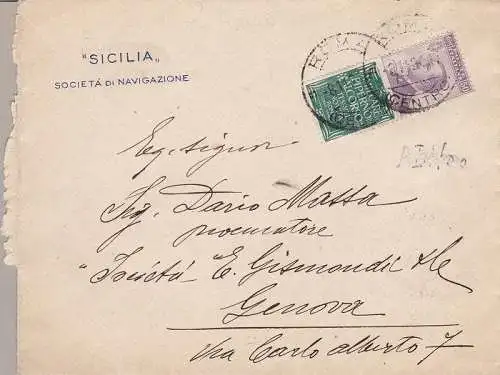 "SICILIA"
SOCIETÁ DI NAVIGAZIONE
ROMA
CENTRO
Eg. Signor
Sig. Dario Massa
procuratore
"Società" E. Gismondi & Ce
Genova
Via Carlo Alberto 7